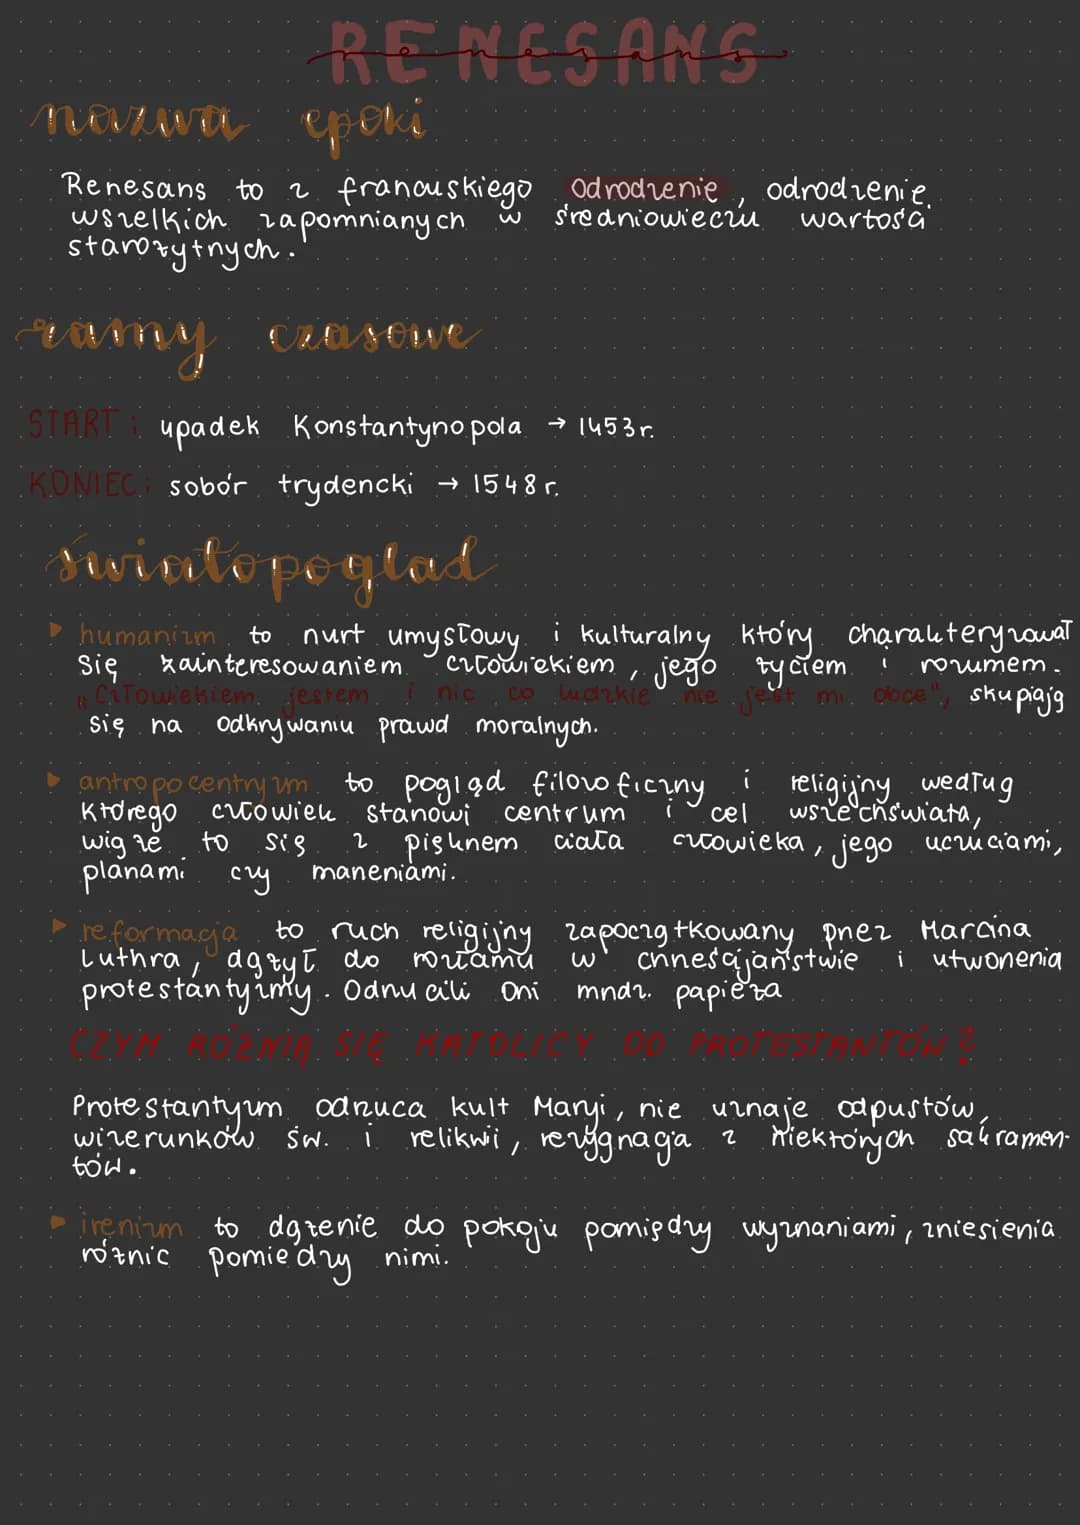 RENESANS
renesans
nazwa epoki
Renesans to z francuskiego Odrodzenie, odrodzenie
wszelkich zapomnianych w średniowieczu wartości
starożytnych.
ramy czasowe
START: upadek Konstantynopola → 1453r.
KONIEC: sobór trydencki → 1548 r.
światopogląd
humanizm to nurt umysłowy i kulturalny który charakteryzował
się zainteresowaniem człowiekiem, jego życiem i rozumem.
„Człowiekiem jestem i nic co ludzkie nie jest mi obce", skupiają
się na odkrywaniu prawd moralnych.
antropocentryzm to pogląd filozoficzny i religijny według
którego człowiek stanowi centrum i cel wszechświata,
wiąże to się z pięknem ciała człowieka, jego uczuciami,
planami czy marzeniami.
reformacja to ruch religijny zapoczątkowany przez Marcina
Luthra, dążył do rozłamu w chrześcijaństwie i utworzenia
protestantyzmy. Odrzucili oni zwierz. papieża
CZYM RÓŻNIĄ SIĘ KATOLICY OD PROTESTANTÓW?
Protestantyzm odrzuca kult Maryi, nie uznaje odpustów,
wizerunków św. i relikwii, rezygnacja z niektórych sakramen-
tów.
irenizm to dążenie do pokoju pomiędzy wyznaniami, zniesienia
różnic pomiedzy nimi.